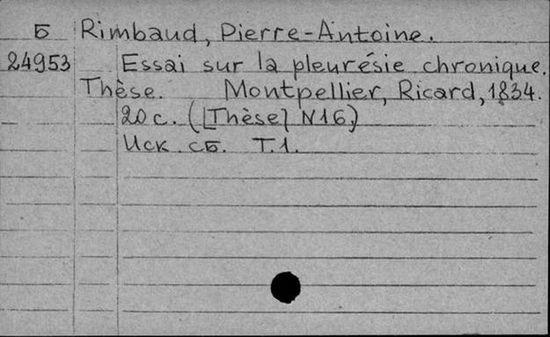 Б Rimbaud, Pierre-Antoine.
24953 Essai sur la pleurésie chronique.
Thèse. Montpellier, Ricard, 1834.
20 с. ([Thèse] N16)
Иск. сб. T.1.